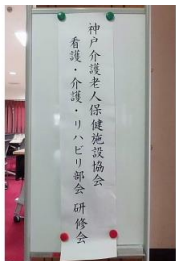 神戸介護老人保健施設協会
看護・介護・リハビリ部会 研修会